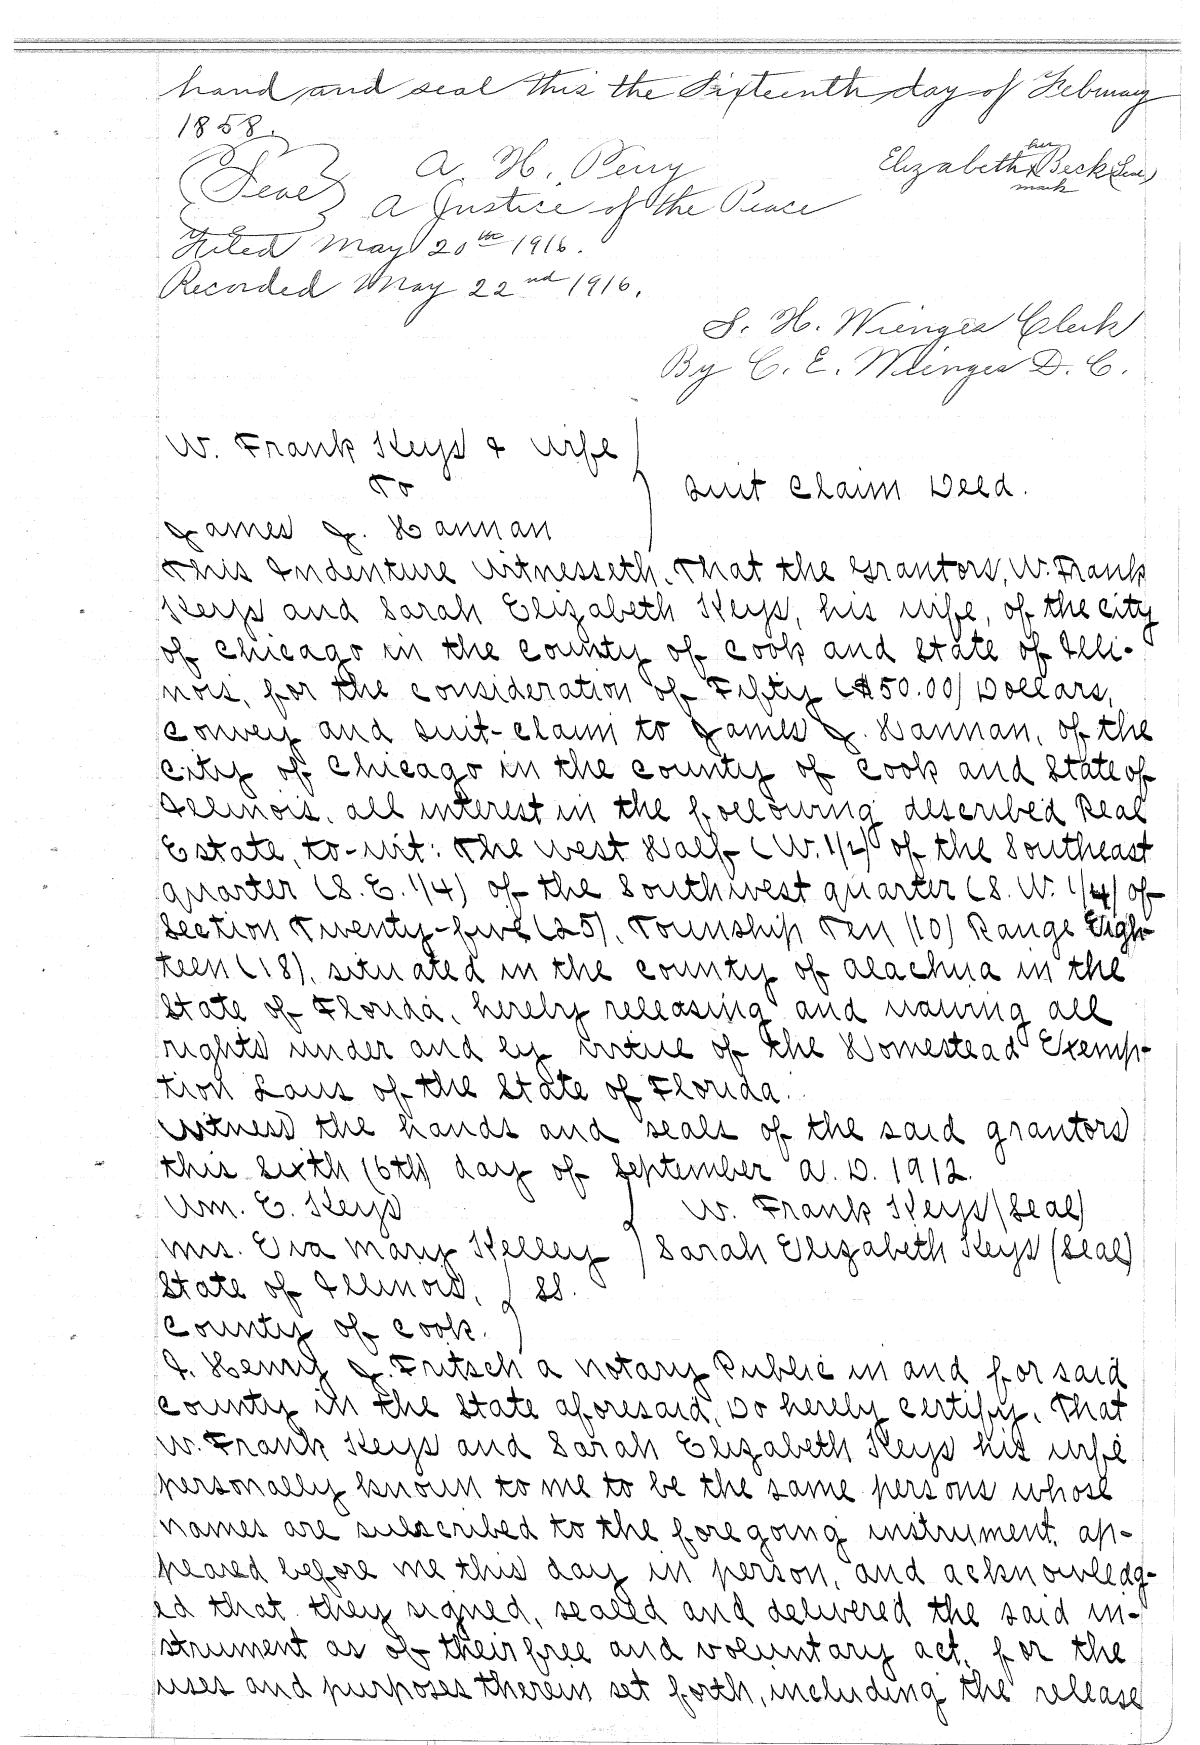 hand and seal this the Sixteenth day of February
1858.
A. H. Perry
Elizabeth her x mark Beck (Seal)
(Seal)
a Justice of the Peace
Filed May 20th 1916.
Recorded May 22nd 1916.
S. H. Wienges Clerk
By C. E. Wienges D. C.
W. Frank Keys & wife
To
Quit Claim Deed.
James J. Hannan
This Indenture Witnesseth, That the Grantors, W. Frank
Keys and Sarah Elizabeth Keys, his wife, of the city
of Chicago in the County of Cook and State of Illi-
nois, for the consideration of Fifty ($50.00) Dollars,
Convey and Quit-Claim to James J. Hannan, of the
City of Chicago in the County of Cook and State of
Illinois, all interest in the following described Real
Estate, to-wit: The West Half (W. 1/2) of the Southeast
quarter (S. E. 1/4) of the Southwest quarter (S. W. 1/4) of
Section Twenty-five (25), Township Ten (10) Range Eigh-
teen (18), situated in the County of Alachua in the
State of Florida, hereby releasing and waiving all
rights under and by virtue of the Homestead Exemp-
tion Laws of the State of Florida.
Witness the hands and seals of the said grantors
this Sixth (6th) day of September A. D. 1912.
Wm. E. Keys
W. Frank Keys (Seal)
Mrs. Eva Mary Kelley
Sarah Elizabeth Keys (Seal)
State of Illinois,
SS.
County of Cook.
I, Henry J. Fritsch a notary Public in and for said
County in the State aforesaid, Do hereby certify, That
W. Frank Keys and Sarah Elizabeth Keys his wife
personally known to me to be the same persons whose
names are subscribed to the foregoing instrument, ap-
peared before me this day in person, and acknowledg-
ed that they signed, sealed and delivered the said in-
strument as of their free and voluntary act, for the
uses and purposes therein set forth, including the release